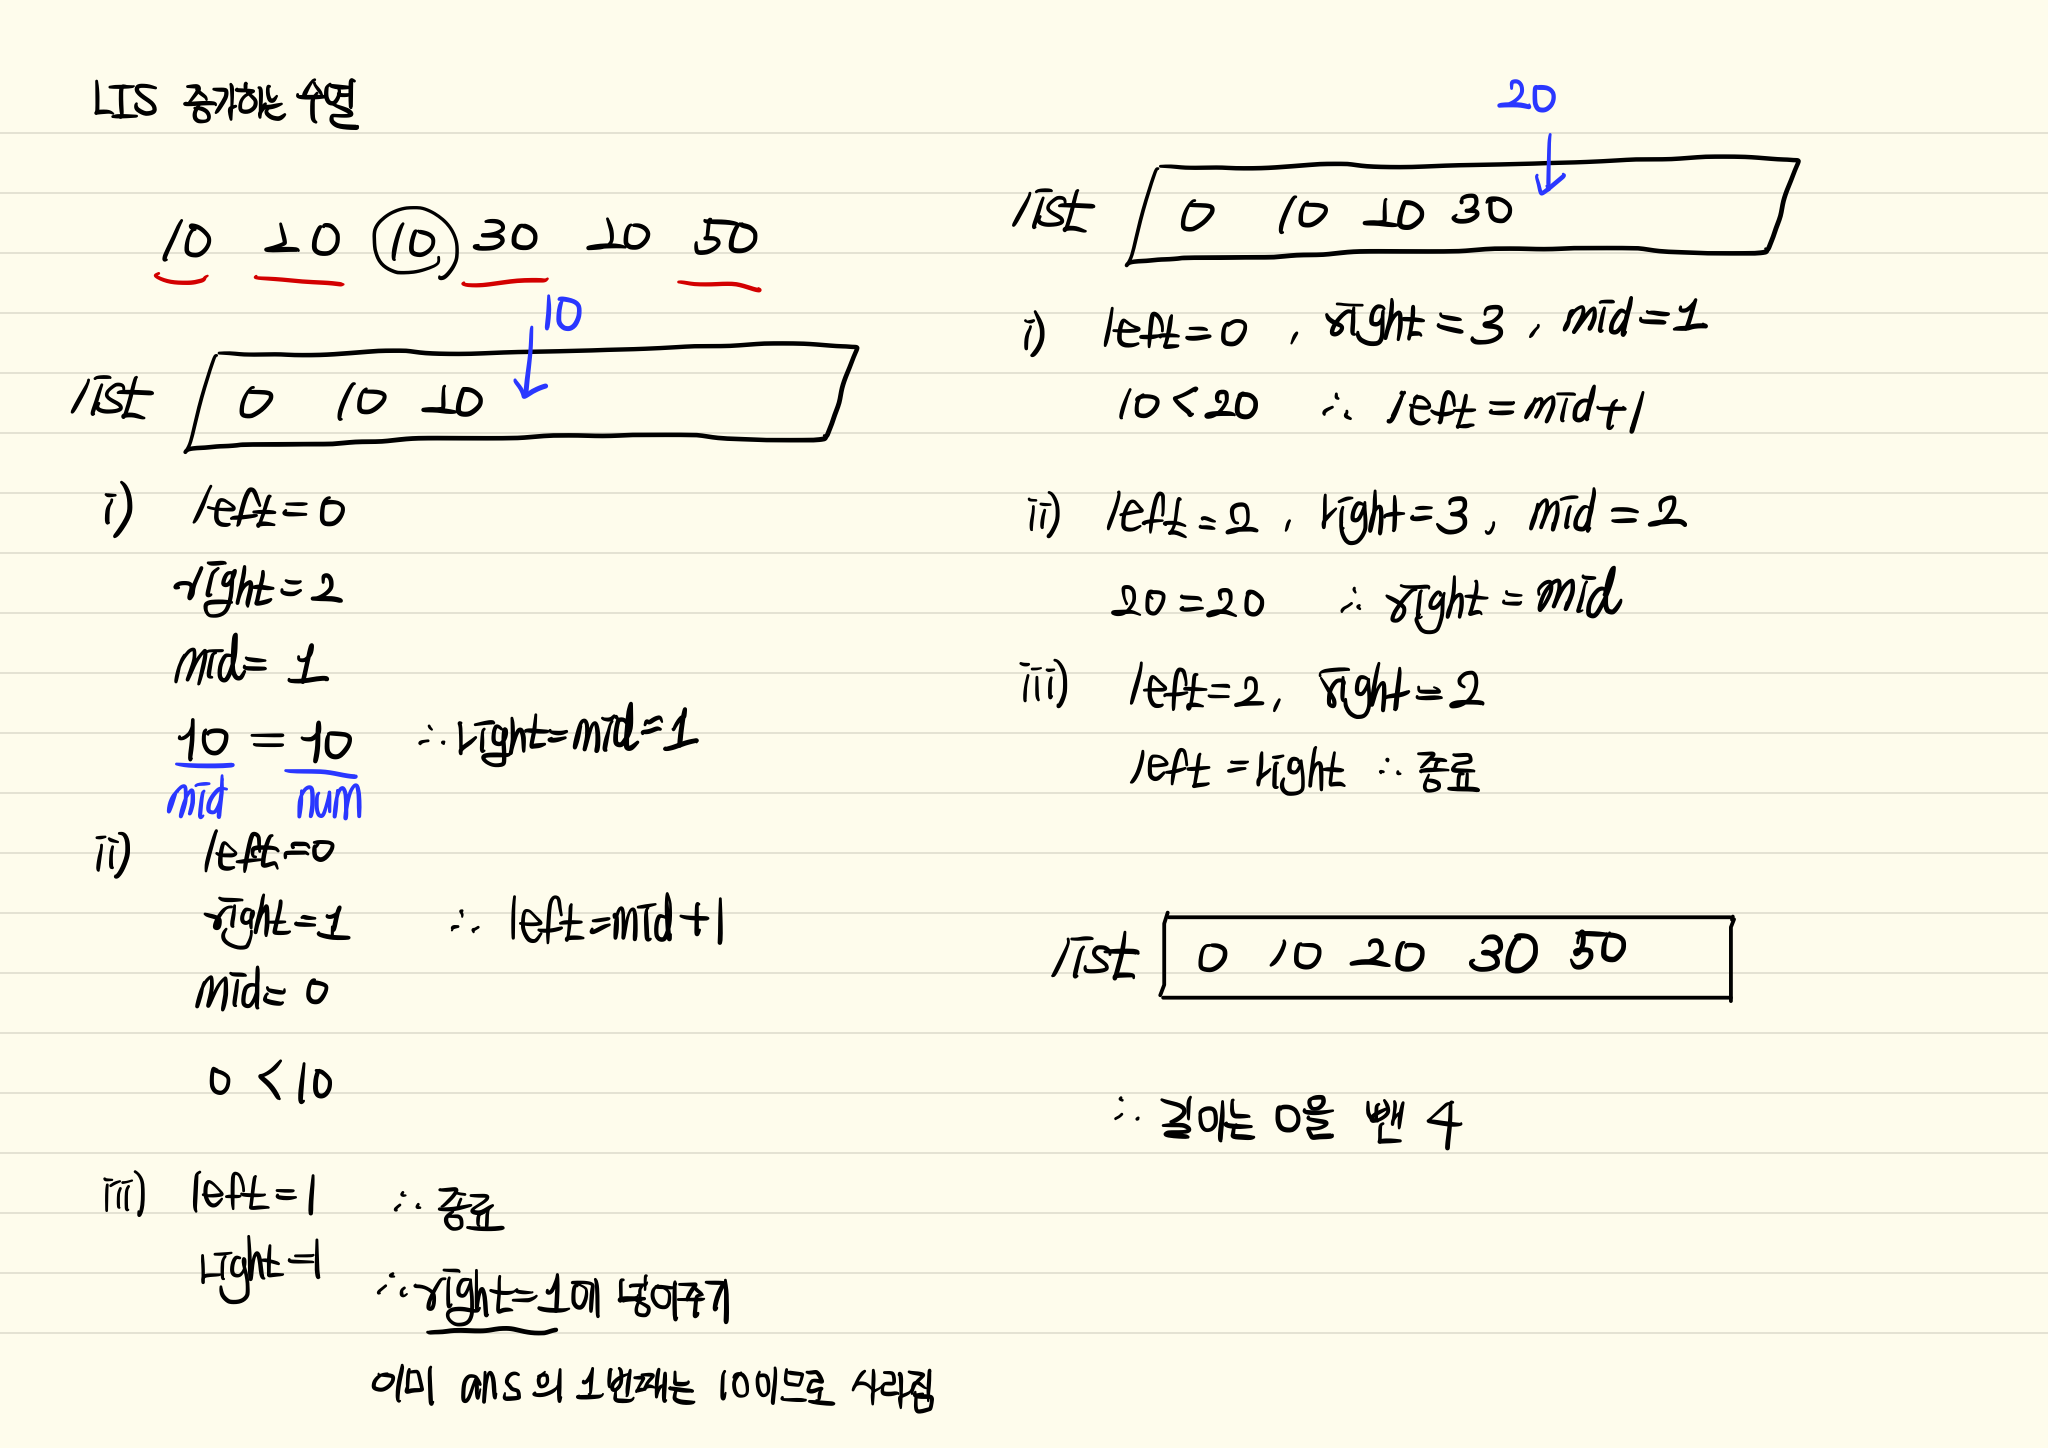 LIS 증가하는 수열
10 20 10, 30 20 50
10
list 0 10 20
i) left=0
right=2
mid=1
10 = 10 ∴ right=mid=1
mid num
ii) left=0
right=1 ∴ left=mid+1
mid=0
0 < 10
iii) left=1 ∴ 종료
right=1
∴ right=1에 넣어주기
이미 ans의 1번째는 10이므로 사라짐
20
list 0 10 20 30
i) left=0, right=3, mid=1
10<20 ∴ left=mid+1
ii) left=2, right=3, mid=2
20=20 ∴ right=mid
iii) left=2, right=2
left=right ∴ 종료
list 0 10 20 30 50
∴ 길이는 0을 뺀 4